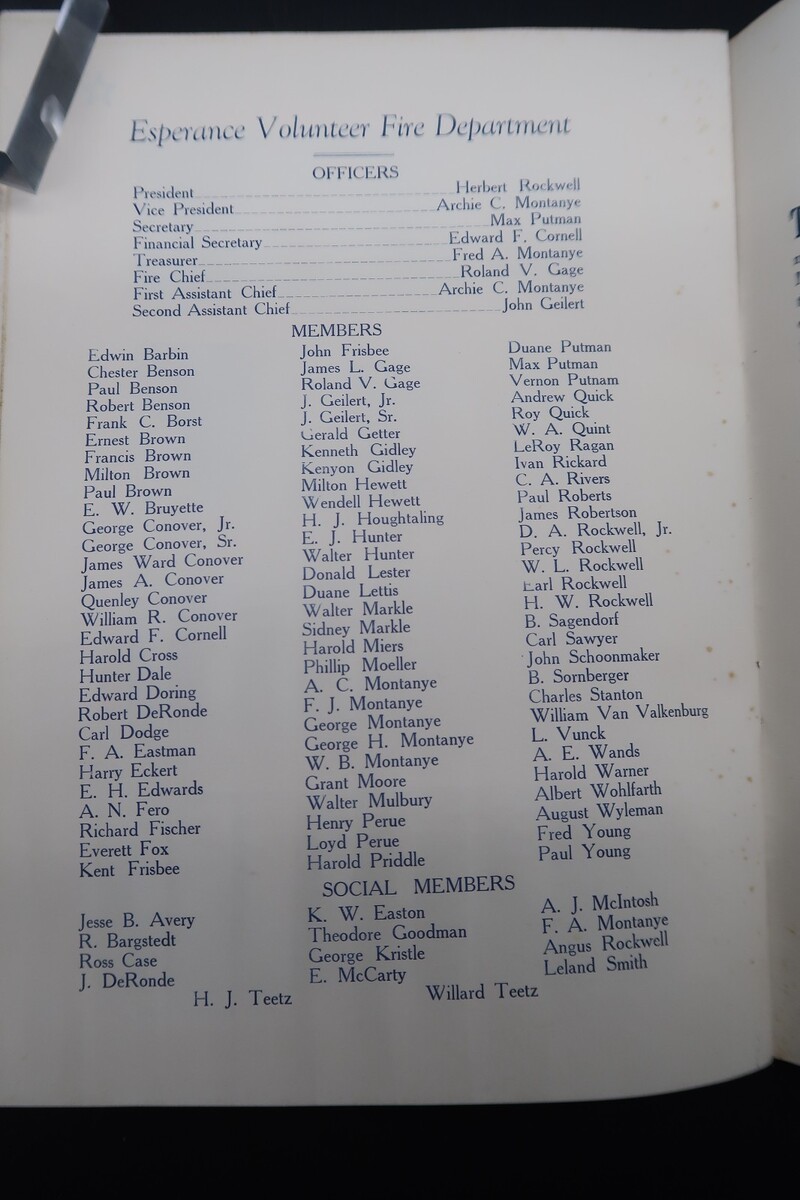 Esperance Volunteer Fire Department
OFFICERS
President Herbert Rockwell
Vice President Archie C. Montanye
Secretary Max Putman
Financial Secretary Edward F. Cornell
Treasurer Fred A. Montanye
Fire Chief Roland V. Gage
First Assistant Chief Archie C. Montanye
Second Assistant Chief John Geilert
MEMBERS
Edwin Barbin
Chester Benson
Paul Benson
Robert Benson
Frank C. Borst
Ernest Brown
Francis Brown
Milton Brown
Paul Brown
E. W. Bruyette
George Conover, Jr.
George Conover, Sr.
James Ward Conover
James A. Conover
Quenley Conover
William R. Conover
Edward F. Cornell
Harold Cross
Hunter Dale
Edward Doring
Robert DeRonde
Carl Dodge
F. A. Eastman
Harry Eckert
E. H. Edwards
A. N. Fero
Richard Fischer
Everett Fox
Kent Frisbee
John Frisbee
James L. Gage
Roland V. Gage
J. Geilert, Jr.
J. Geilert, Sr.
Gerald Getter
Kenneth Gidley
Kenyon Gidley
Milton Hewett
Wendell Hewett
H. J. Houghtaling
E. J. Hunter
Walter Hunter
Donald Lester
Duane Lettis
Walter Markle
Sidney Markle
Harold Miers
Phillip Moeller
A. C. Montanye
F. J. Montanye
George Montanye
George H. Montanye
W. B. Montanye
Grant Moore
Walter Mulbury
Henry Perue
Loyd Perue
Harold Priddle
Duane Putman
Max Putman
Vernon Putnam
Andrew Quick
Roy Quick
W. A. Quint
LeRoy Ragan
Ivan Rickard
C. A. Rivers
Paul Roberts
James Robertson
D. A. Rockwell, Jr.
Percy Rockwell
W. L. Rockwell
Earl Rockwell
H. W. Rockwell
B. Sagendorf
Carl Sawyer
John Schoonmaker
B. Sornberger
Charles Stanton
William Van Valkenburg
L. Vunck
A. E. Wands
Harold Warner
Albert Wohlfarth
August Wyleman
Fred Young
Paul Young
SOCIAL MEMBERS
Jesse B. Avery
R. Bargstedt
Ross Case
J. DeRonde
K. W. Easton
Theodore Goodman
George Kristle
E. McCarty
A. J. McIntosh
F. A. Montanye
Angus Rockwell
Leland Smith
H. J. Teetz Willard Teetz